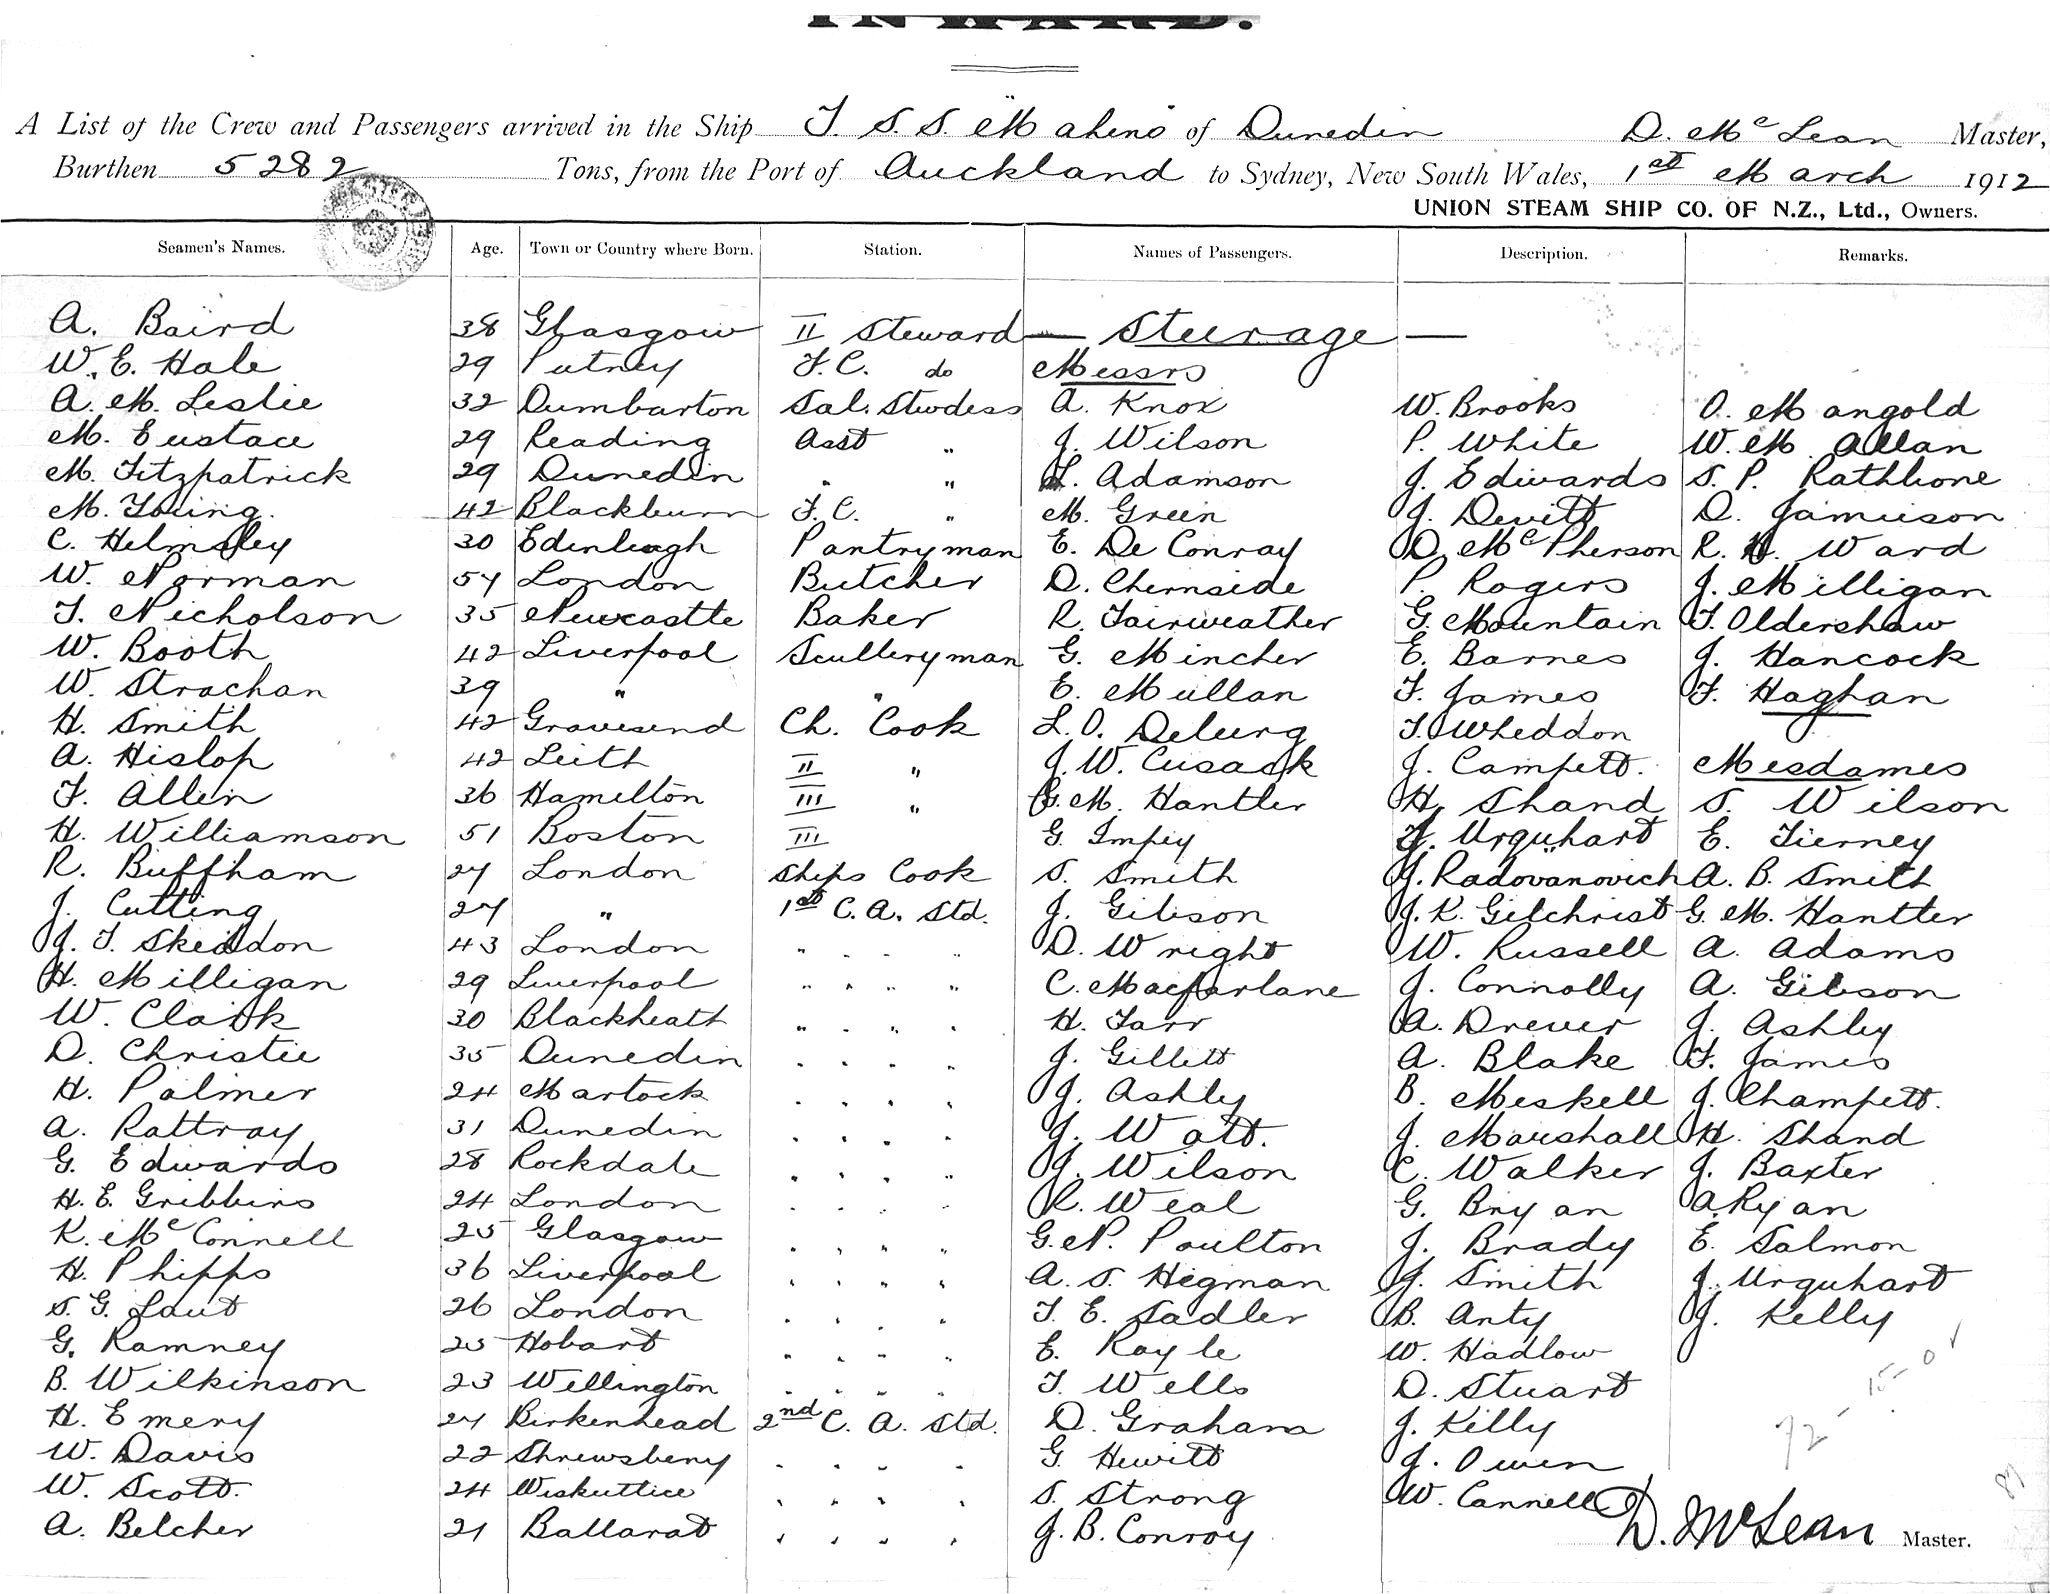 INWARD.
A List of the Crew and Passengers arrived in the Ship T. S. S. Maheno of Dunedin D. McLean Master,
Burthen 5282 Tons, from the Port of Auckland to Sydney, New South Wales, 1st March 1912
UNION STEAM SHIP CO. OF N.Z., Ltd., Owners.
Seamen's Names. Age. Town or Country where Born. Station. Names of Passengers. Description. Remarks.
A. Baird 38 Glasgow II Steward — Steerage —
W. E. Hale 29 Putney F. C. do Messrs
A. M. Leslie 32 Dumbarton Sal. Stwdess A. Knox W. Brooks O. Mangold
M. Eustace 29 Reading Asst " J. Wilson P. White W. M. Allan
M. Fitzpatrick 29 Dunedin " " L. Adamson J. Edwards S. P. Rathbone
M. Young. 42 Blackburn F. C. " M. Green J. Devitt D. Jamieson
C. Helmsley 30 Edinburgh Pantryman E. De Conray D. McPherson R. H. Ward
W. Norman 57 London Butcher D. Chernside P. Rogers J. Milligan
T. Nicholson 35 Newcastle Baker R. Fairweather G. Mountain F. Oldershaw
W. Booth 42 Liverpool Sculleryman G. Mincher E. Barnes J. Hancock
W. Strachan 39 " " E. Mullan F. James F. Haghan
H. Smith 42 Gravesend Ch. Cook L. O. Delurg F. Wheddon
A. Hislop 42 Leith II " J. W. Cusack J. Campett. Mesdames
F. Allen 36 Hamilton III " G. M. Hantler H. Shand S. Wilson
H. Williamson 51 Boston III G. Impey J. Urquhart E. Tierney
R. Buffham 27 London Ships Cook S. Smith J. Radovanovich A. B. Smith
J. Cutting 27 " 1st C. A. Std. J. Gibson J. K. Gilchrist G. M. Hantler
J. T. Skeddon 43 London " " " " D. Wright W. Russell A. Adams
H. Milligan 29 Liverpool " " " " C. Macfarlane J. Connolly A. Gibson
W. Clark 30 Blackheath " " " " H. Farr A. Drever J. Ashley
D. Christie 35 Dunedin " " " " J. Gillett A. Blake F. James
H. Palmer 24 Martock " " " " J. Ashley B. Meskell J. Champett.
A. Rattray 31 Dunedin " " " " J. Watt. J. Marshall H. Shand
G. Edwards 28 Rockdale " " " " J. Wilson C. Walker J. Baxter
H. E. Gribbins 24 London " " " " R. Weal G. Bryan A. Ryan
K. McConnell 25 Glasgow " " " " G. N. Poulton J. Brady E. Salmon
H. Phipps 36 Liverpool " " " " A. S. Hegman J. Smith J. Urquhart
S. G. Laut 26 London " " " " T. E. Sadler B. Anty J. Kelly
G. Ramney 25 Hobart " " " " E. Rayle W. Hadlow
B. Wilkinson 23 Wellington " " " " T. Wells D. Stuart
H. Emery 27 Birkenhead 2nd C. A. Std. D. Graham J. Kelly
W. Davis 22 Shrewsbery " " " " G. Hewitt J. Owen
W. Scott. 24 " " " " S. Strong W. Cannell
A. Belcher 21 Ballarat " " " " J. B. Conroy
D. McLean Master.